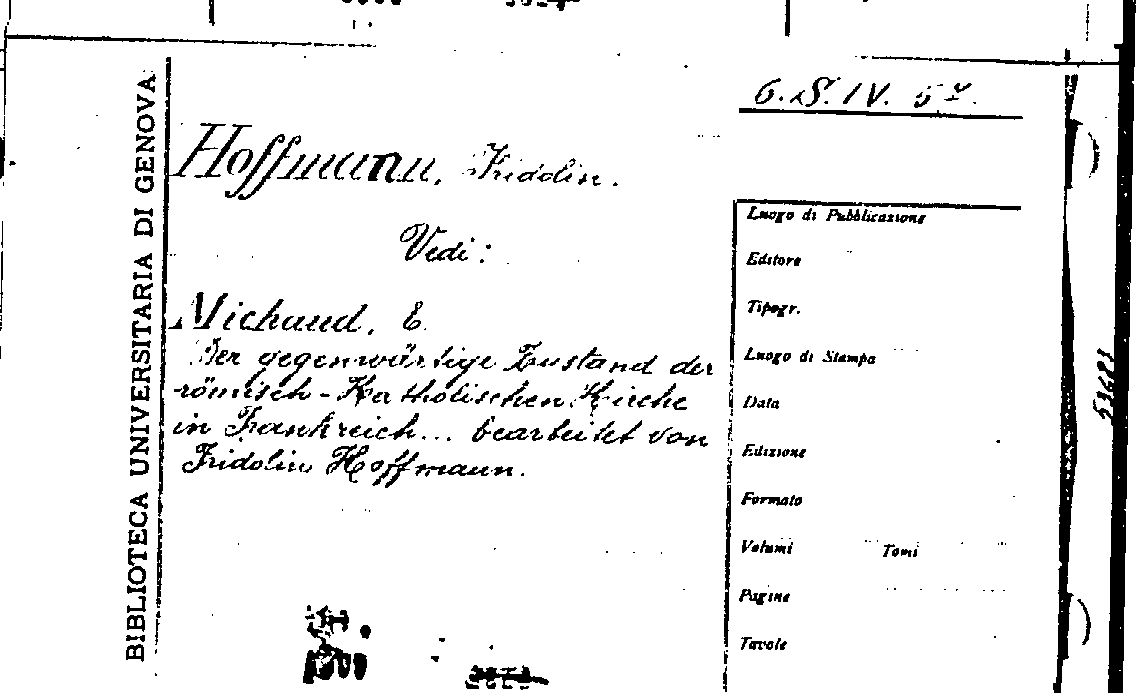 BIBLIOTECA UNIVERSITARIA DI GENOVA
6.S.IV.
Hoffmann, Fridolin.
Vedi:
Michaud, E.
Der gegenwärtige Zustand der
römisch-Katholischen Kirche
in Frankreich... bearbeitet von
Fridolin Hoffmann.
Luogo di Pubblicazione
Editore
Tipogr.
Luogo di Stampa
Data
Edizione
Formato
Volumi Tomi
Pagine
Tavole